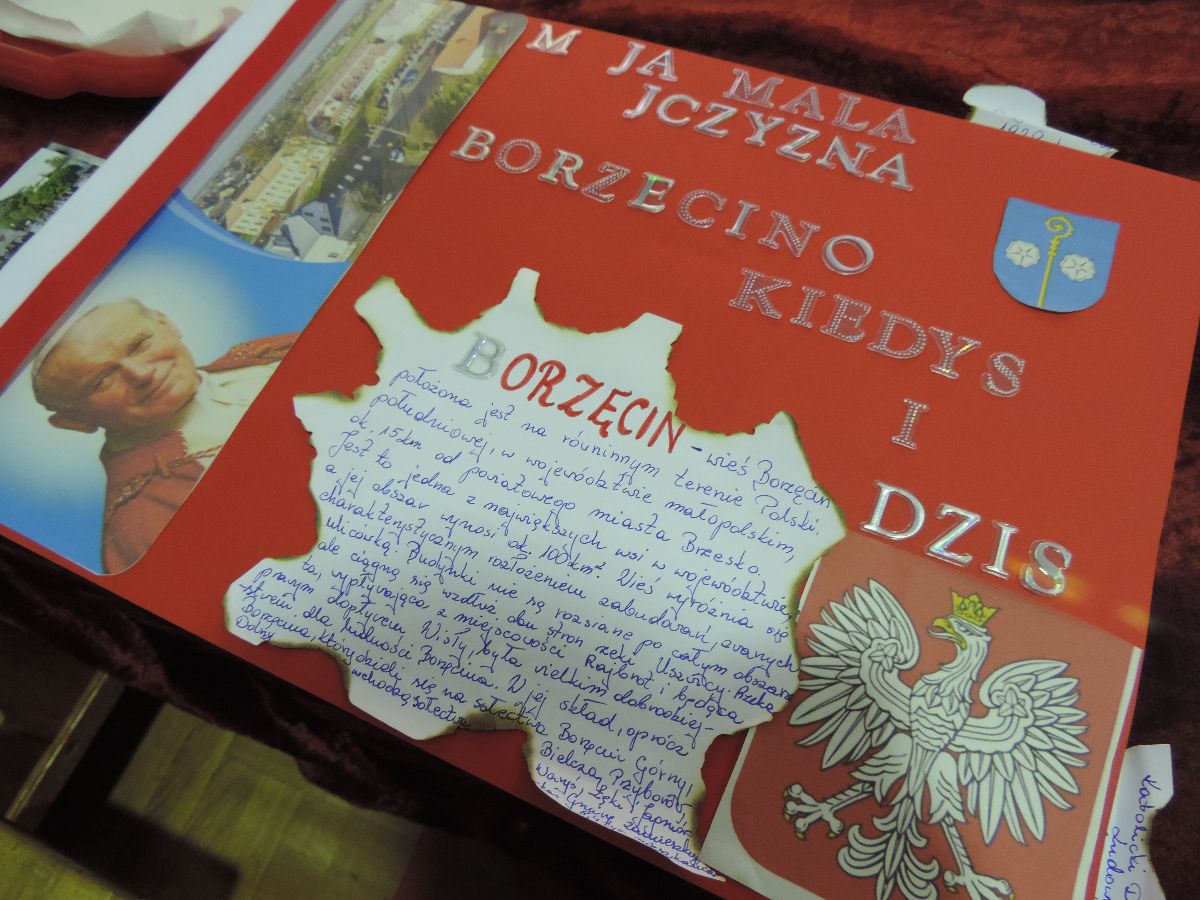 M JA MALA
JCZYZNA
BORZECINO
KIEDYS
I
DZIS
BORZĘCIN - wieś Borzęcin
położona jest na równinnym terenie Polski
południowej, w województwie małopolskim,
ok. 15 km od powiatowego miasta Brzesko.
Jest to jedna z największych wsi w województwie,
a jej obszar wynosi ok. 100 km². Wieś wyróżnia się
charakterystycznym rozłożeniem zabudowań, zwanych
ulicówką. Budynki nie są rozsiane po całym obszarze
ale ciągną się wzdłuż obu stron rzeki Uszwicy. Rzeka
ta, wypływająca z miejscowości Rajbrot i będąca
prawym dopływem Wisły, była wielkim dobrodziej-
stwem dla ludności Borzęcina. W jej skład, oprócz
Borzęcina, który dzieli się na sołectwa Borzęcin Górny i
Dolny wchodzą sołectwa
Bielcza, Przyborów,
Waryś, Łęki, Jagniów
Katolicki D
Ludow